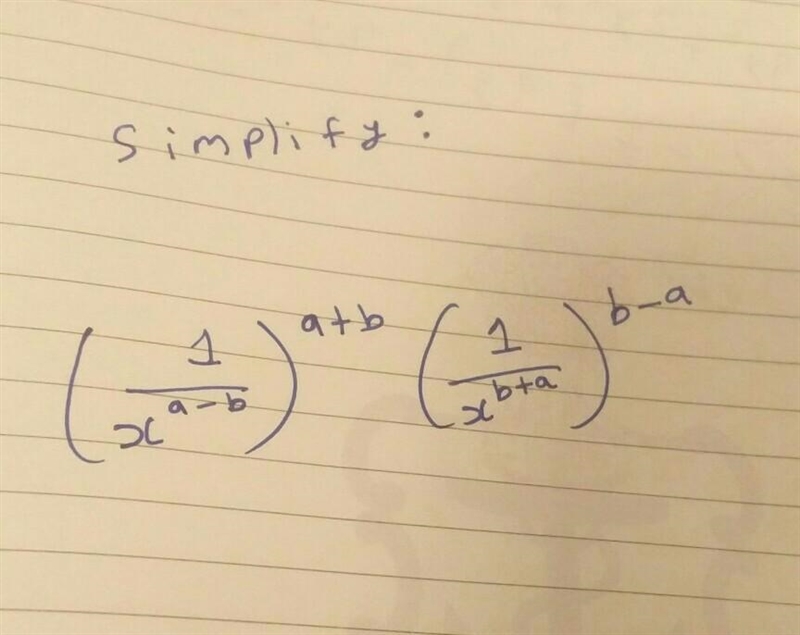 Simplify:
(1/x^(a-b))^(a+b) (1/x^(b+a))^(b-a)